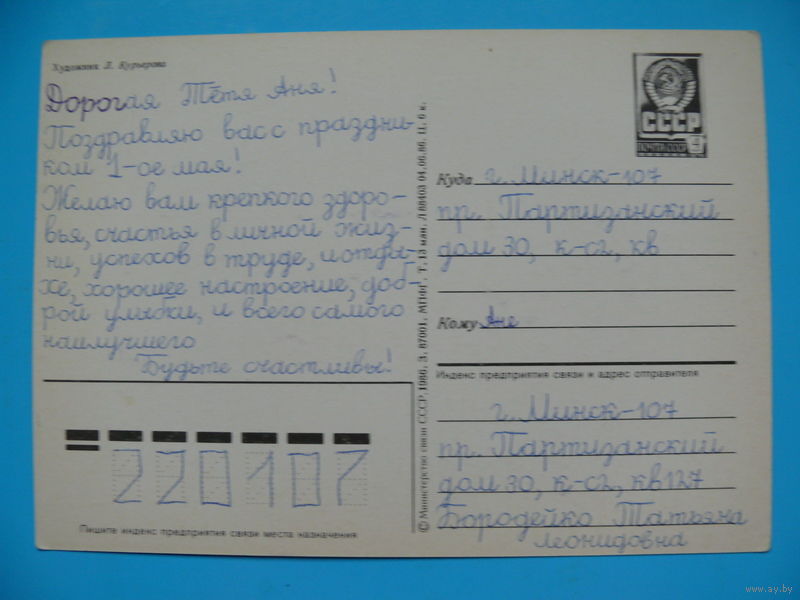 Художник Л. Курьерова
Дорогая Тётя Аня!
Поздравляю вас с праздни-
ком 1-ое мая!
Желаю вам крепкого здоро-
вья, счастья в личной жиз-
ни, успехов в труде, и отды-
хе, хорошее настроение, доб-
рой улыбки, и всего самого
наилучшего
Будьте счастливы!
220107
Пишите индекс предприятия связи места назначения
© Министерство связи СССР, 1986. З. 87001. МПФГ. Т. 13 млн. Л 88403 04.06.86. Ц. 6 к.
СССР
ПОЧТА СССР
Куда г. Минск-107
пр. Партизанский
дом 30, к-с2, кв
Кому Ане
Индекс предприятия связи и адрес отправителя
г. Минск-107
пр. Партизанский
дом 30, к-с2, кв 127
Бородейко Татьяна
Леонидовна
www.ay.by